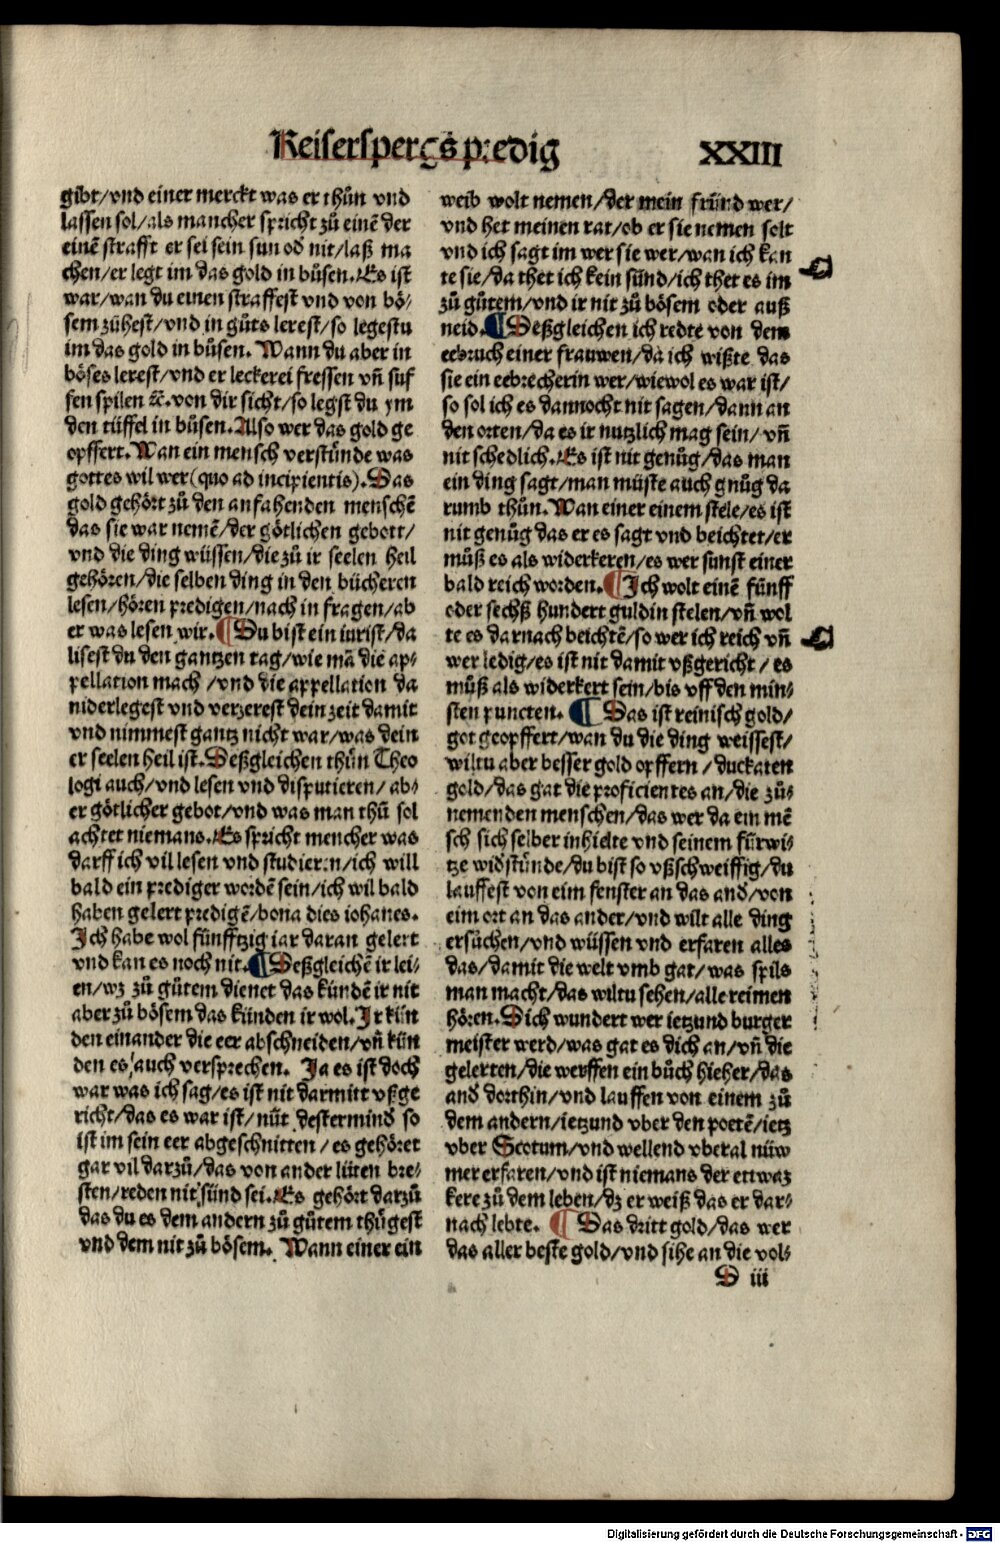 Keiserspergs predig XXIII
gibt/vnd einer merckt was er thůn vnd
lassen sol/als mancher spricht zů einē der
einē strafft er sei sein sun od̄ nit/laß ma
chen/er legt im das gold in bůsen. Es ist
war/wan du einen straffest vnd von bö⸗
sem zühest/vnd in gůts lerest/so legestu
im das gold in bůsen. Wann du aber in
böses lerest/vnd er leckerei fressen vn̄ suf
fen spilen ⁊c̄. von dir sicht/so legst du ym
den tüffel in bůsen. Also wer das gold ge
opffert. Wan ein mensch verstünde was
gottes wil wer (quo ad incipientis). Das
gold gehört zů den anfahenden menschē
das sie war nemē/der götlichen gebott/
vnd die ding wüssen/die zů ir seelen heil
gehören/die selben ding in den bücheren
lesen/hören predigen/nach in fragen/ab
er was lesen wir. ¶ Du bist ein iurist/da
lisest du den gantzen tag/wie mā die ap⸗
pellation mach/vnd die appellation da
niderlegest vnd verzerest dein zeit damit
vnd nimmest gantz nicht war/was dein
er seelen heil ist. Deßgleichen thůn Theo
logi auch/vnd lesen vnd disputieren/ab⸗
er götlicher gebot/vnd was man thů sol
achtet niemans. Es spricht mencher was
darff ich vil lesen vnd studieren/ich will
bald ein prediger wordē sein/ich wil bald
haben gelert predigē/bona dies iohanes.
Ich habe wol fünfftzig iar daran gelert
vnd kan es noch nit. ¶ Deßgleichē ir lei⸗
en/wz zů gůtem dienet das kündē ir nit
aber zů bösem das künden ir wol. Ir kün
den einander die eer abschneiden/vn̄ kün
den es auch versprechen. Ja es ist doch
war was ich sag/es ist nit darmitt vßge
richt/das es war ist/nüt destermind̄ so
ist im sein eer abgeschnitten/es gehöret
gar vil darzů/das von ander lüten bre⸗
sten/reden nit sünd sei. Es gehört darzů
das du es dem andern zů gůtem thügest
vnd dem nit zů bösem. Wann einer ein
weib wolt nemen/der mein fründ wer/
vnd het meinen rat/ob er sie nemen solt
vnd ich sagt im wer sie wer/wan ich kan
te sie/da thet ich kein sünd/ich thet es im
zů gůtem/vnd ir nit zů bösem oder auß
neid. ¶ Deßgleichen ich redte von dem
eebruch einer frauwen/da ich wißte das
sie ein eebrecherin wer/wiewol es war ist/
so sol ich es dannocht nit sagen/dann an
den orten/da es ir nutzlich mag sein/vn̄
nit schedlich. Es ist nit genůg/das man
ein ding sagt/man müste auch gnůg da
rumb thůn. Wan einer einem stele/es ist
nit genůg das er es sagt vnd beichtet/er
můß es als widerkeren/es wer sunst einer
bald reich worden. ¶ Ich wolt einē fünff
oder sechß hundert guldin stelen/vn̄ wol
te es darnach beichtē/so wer ich reich vn̄
wer ledig/es ist nit damit vßgericht/es
můß als widerkert sein/bis vff den min⸗
sten puncten. ¶ Das ist reinisch gold/
got geopffert/wan du die ding weissest/
wiltu aber besser gold opffern/duckaten
gold/das gat die proficientes an/die zů⸗
nemenden menschen/das wer da ein mē
sch sich selber inhielte vnd seinem fürwi⸗
tze wid̄stünde/du bist so vßschweiffig/du
lauffest von eim fenster an das and̄/von
eim ort an das ander/vnd wilt alle ding
ersůchen/vnd wüssen vnd erfaren alles
das/damit die welt vmb gat/was spils
man macht/das wiltu sehen/alle reimen
hören. Dich wundert wer ietzund burger
meister werd/was gat es dich an/vn̄ die
gelerten/die werffen ein bůch hieher/das
and̄ dorthin/vnd lauffen von einem zů
dem andern/ietzund vber den poetē/ietz
vber Scotum/vnd wellend vberal nüw
mer erfaren/vnd ist niemans der ettwaz
kere zů dem leben/dz er weiß das er dar⸗
nach lebte. ¶ Das dritt gold/das wer
das aller beste gold/vnd sihe an die vol⸗
D iii
Digitalisierung gefördert durch die Deutsche Forschungsgemeinschaft - DFG